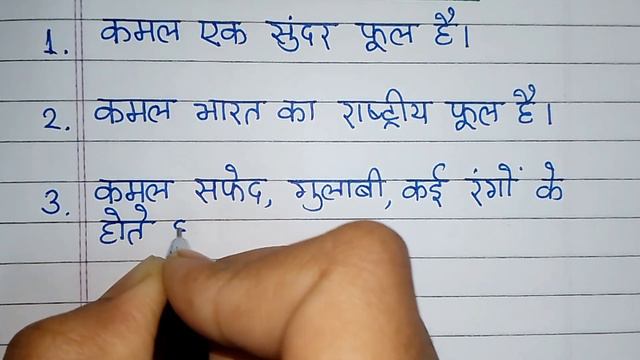 1. कमल एक सुंदर फूल है।
2. कमल भारत का राष्ट्रीय फूल है।
3. कमल सफेद, गुलाबी, कई रंगों के
होते